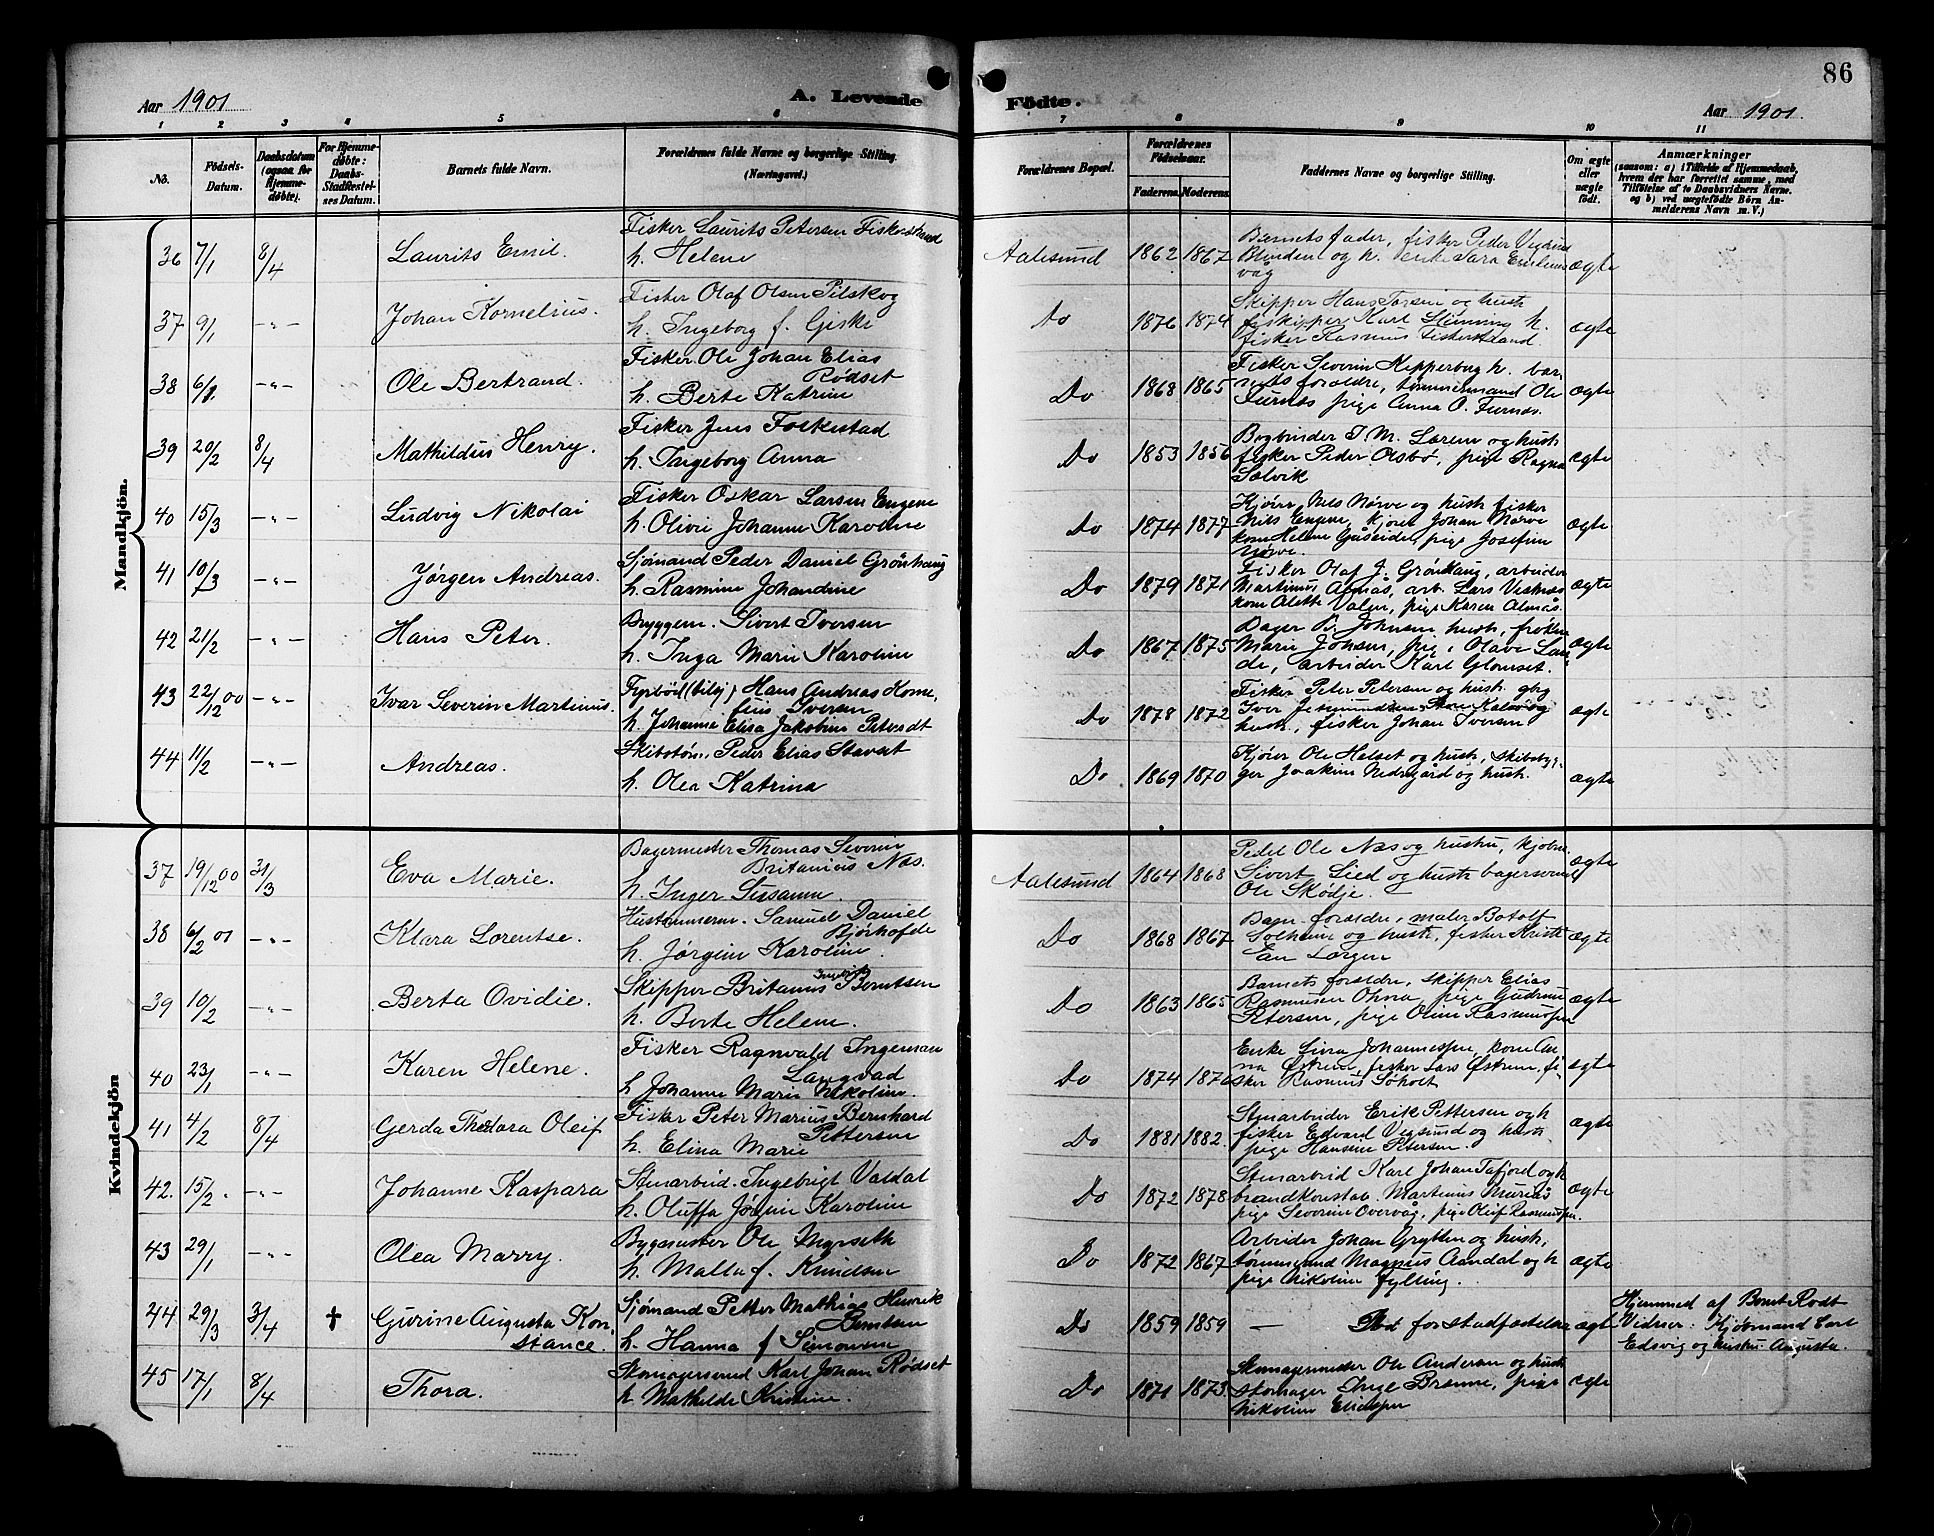 Aar 1901
A. Levende
Födte.
Aar 1901.
86
1 2 3 4 5 6
7 8 9 10 11
No.
Fødsels-
Datum.
Daabsdatum
(ogsaa for
Hjemme-
døbte).
For Hjemme-
døbte:
Daabs-
Stadfæstel-
ses Datum.
Barnets fulde Navn.
Forældrenes fulde Navne og borgerlige Stilling.
(Næringsvei.)
Forældrenes Bopæl.
Forældrenes
Fødselsaar.
Faderens.
Moderens.
Faddernes Navne og borgerlige Stilling.
Om ægte
eller
uægte
født.
Anmærkninger
(saasom: a) i Tilfælde af Hjemmedaab,
hvem der har forrettet samme, med
Tilføielse af to Daabsvidners Navne.
og b) ved uægtefødte Börn An-
melderens Navn m. V.)
Mandkjön.
36 7/1 8/4 Laurits Emil.
Fisker Laurits Petersen Fiskerstrand
h. Helene
Aalesund 1862 1867
Barnets fader, fisker Peder
ægte
37 9/1 -"- Johan Kornelius.
Fisker Olaf Olsen Pilskog
h. Ingeborg f. Giske
do 1876 1874
Skipper Hans og hust
fiskipper Karl h.
fisker Rasmus Fiskerstrand.
ægte
38 6/1 -"- Ole Bertrand.
Fisker Ole Johan Elias
Rødset
h. Berte Katrine
Do 1868 1865
Fisker Severin Kipperberg h. bar-
nets forældre, tømmermand Ole
Furnæs pige Anna O. Furnæs.
ægte
39 20/2 8/4 Mathildus Henry.
Fisker Jens Folkestad
h. Ingeborg Anna
Do 1853 1856
Bogbinder I. M. og hust
fisker Peder Olsbø, pige Ragna
Solvik
ægte
40 15/3 -"- Ludvig Nikolai
Fisker Oskar Larsen Eugene
h. Olivie Johanne Karoline
Do 1874 1877
Kjører Nils Nørve og hust fisker
Nils kjører Johan Nørve
kone Helene Gåseide, pige Josefine
Nørve.
ægte
41 10/3 -"- Jørgen Andreas.
Sjømand Peder Daniel Grönhaug
h. Rasmine Johandine
Do 1879 1871
Fisker Olaf J. Grönhaug, arbeider
Martinus Almås, arb. Lars
kone Alette pige Karen Almås.
ægte
42 21/2 -"- Hans Peter.
Bryggem. Sivert Iversen
h. Inga Marie Karoline
Do 1867 1875
Bager B. Johnsen hust, frøken
Marie Johnsen, pige Olave
de, arbeider Karl Glomset.
ægte
43 22/12 00 -"- Ivar Severin Martinus.
Fyrbød (bilej) Hans Andreas Korne-
lius Iversen
h. Johanne Elisa Jakobine Petersdt
Do 1878 1872
Fisker Peter Petersen og hust. gbg
Iver
hust, fisker Johan Iversen
ægte
44 11/2 -"- Andreas.
Skibstøm. Peder Elias Stavset
h. Olea Katrina
Do 1869 1870
Kjører Ole Helset og hust, skibsbyg-
ger Joakim Nedregård og hust.
ægte
Kvindekjön
37 19/12 00 31/3 Eva Marie.
Bagermester Thomas Severin
Britanius Næs.
h. Inger Susanne
Aalesund 1864 1868
Pedel Ole Næs og hustru, kjøbm.
Sivert Lied og hust bagersvend
Ole Sködje.
ægte
38 6/2 01 -"- Klara Lorentse.
Hustømmerm. Samuel Daniel
Bjørhofde
h. Jørgine Karoline.
Do 1868 1867
Barn. forældre, maler Botolf
Solheim og hust, fisker Kristi-
an Lorgen
ægte
39 10/2 -"- Berta Ovidie.
Skipper Britanus Ingebrigt Berntsen
h. Berte Helene.
Do 1863 1865
Barnets forældre, skipper Elias
Rasmussen Ohna, pige Gudrun
Petersen, pige Oline Rasmusspn
ægte
40 23/1 -"- Karen Helene.
Fisker Ragnvald Ingeman
Langvad
h. Johanne Marie Nikoline.
Do 1874 1876
Enke Sivra Johannesspn, kone An-
na Østrem, fisker Lars Østrem, fi-
sker Rasmus Søholt
ægte
41 4/2 8/4 Gerda Theodora Oleif
Fisker Peter Marius Bernhard
Pettersen
h. Elina Marie
Do 1881 1882.
Stenarbeider Erik Pettersen og h
fisker Edvard Vegsund og hust.
pige Hansine Petersen.
ægte
42. 15/2. -"- Johanne Kaspara
Stenarbeid. Ingebrigt Valdal
h. Oluffa Jörgine Karoline
Do 1872 1878
Stenarbeid Karl Johan Tafjord og h
brandkonstab. Martinus Muriås
pige Severine Overvåg, pige Oleif Rasmusspn.
ægte
43 29/1 -"- Olea Marry.
Bygmester Ole Myrseth
h. Malla f. Knudsen
Do 1872 1867
Arbeider Johan Grytten og hust,
tømmermand Magnus Aandal og h
pige Nikoline Fylling.
ægte
44 29/3 3/4 † Gurine Augusta Kon-
stance.
Sjømand Petter Mathias Henrik
Berntsen
h. Hanna f Simonsen
Do 1859 1859
— Død før stadfæstelsen
ægte
Hjemmed af Bernt Rødt
Vidner: Kjøbmand Carl
Edsvig og hustru Augusta.
45 17/1 8/4 Thora.
Skomagersvend Karl Johan Rødset
h. Mathilde Kristine.
Do 1871 1873.
Skomagermester Ole Andersen og hust
skomager Inge Brænne, pige
Nikoline Eliasspn
ægte